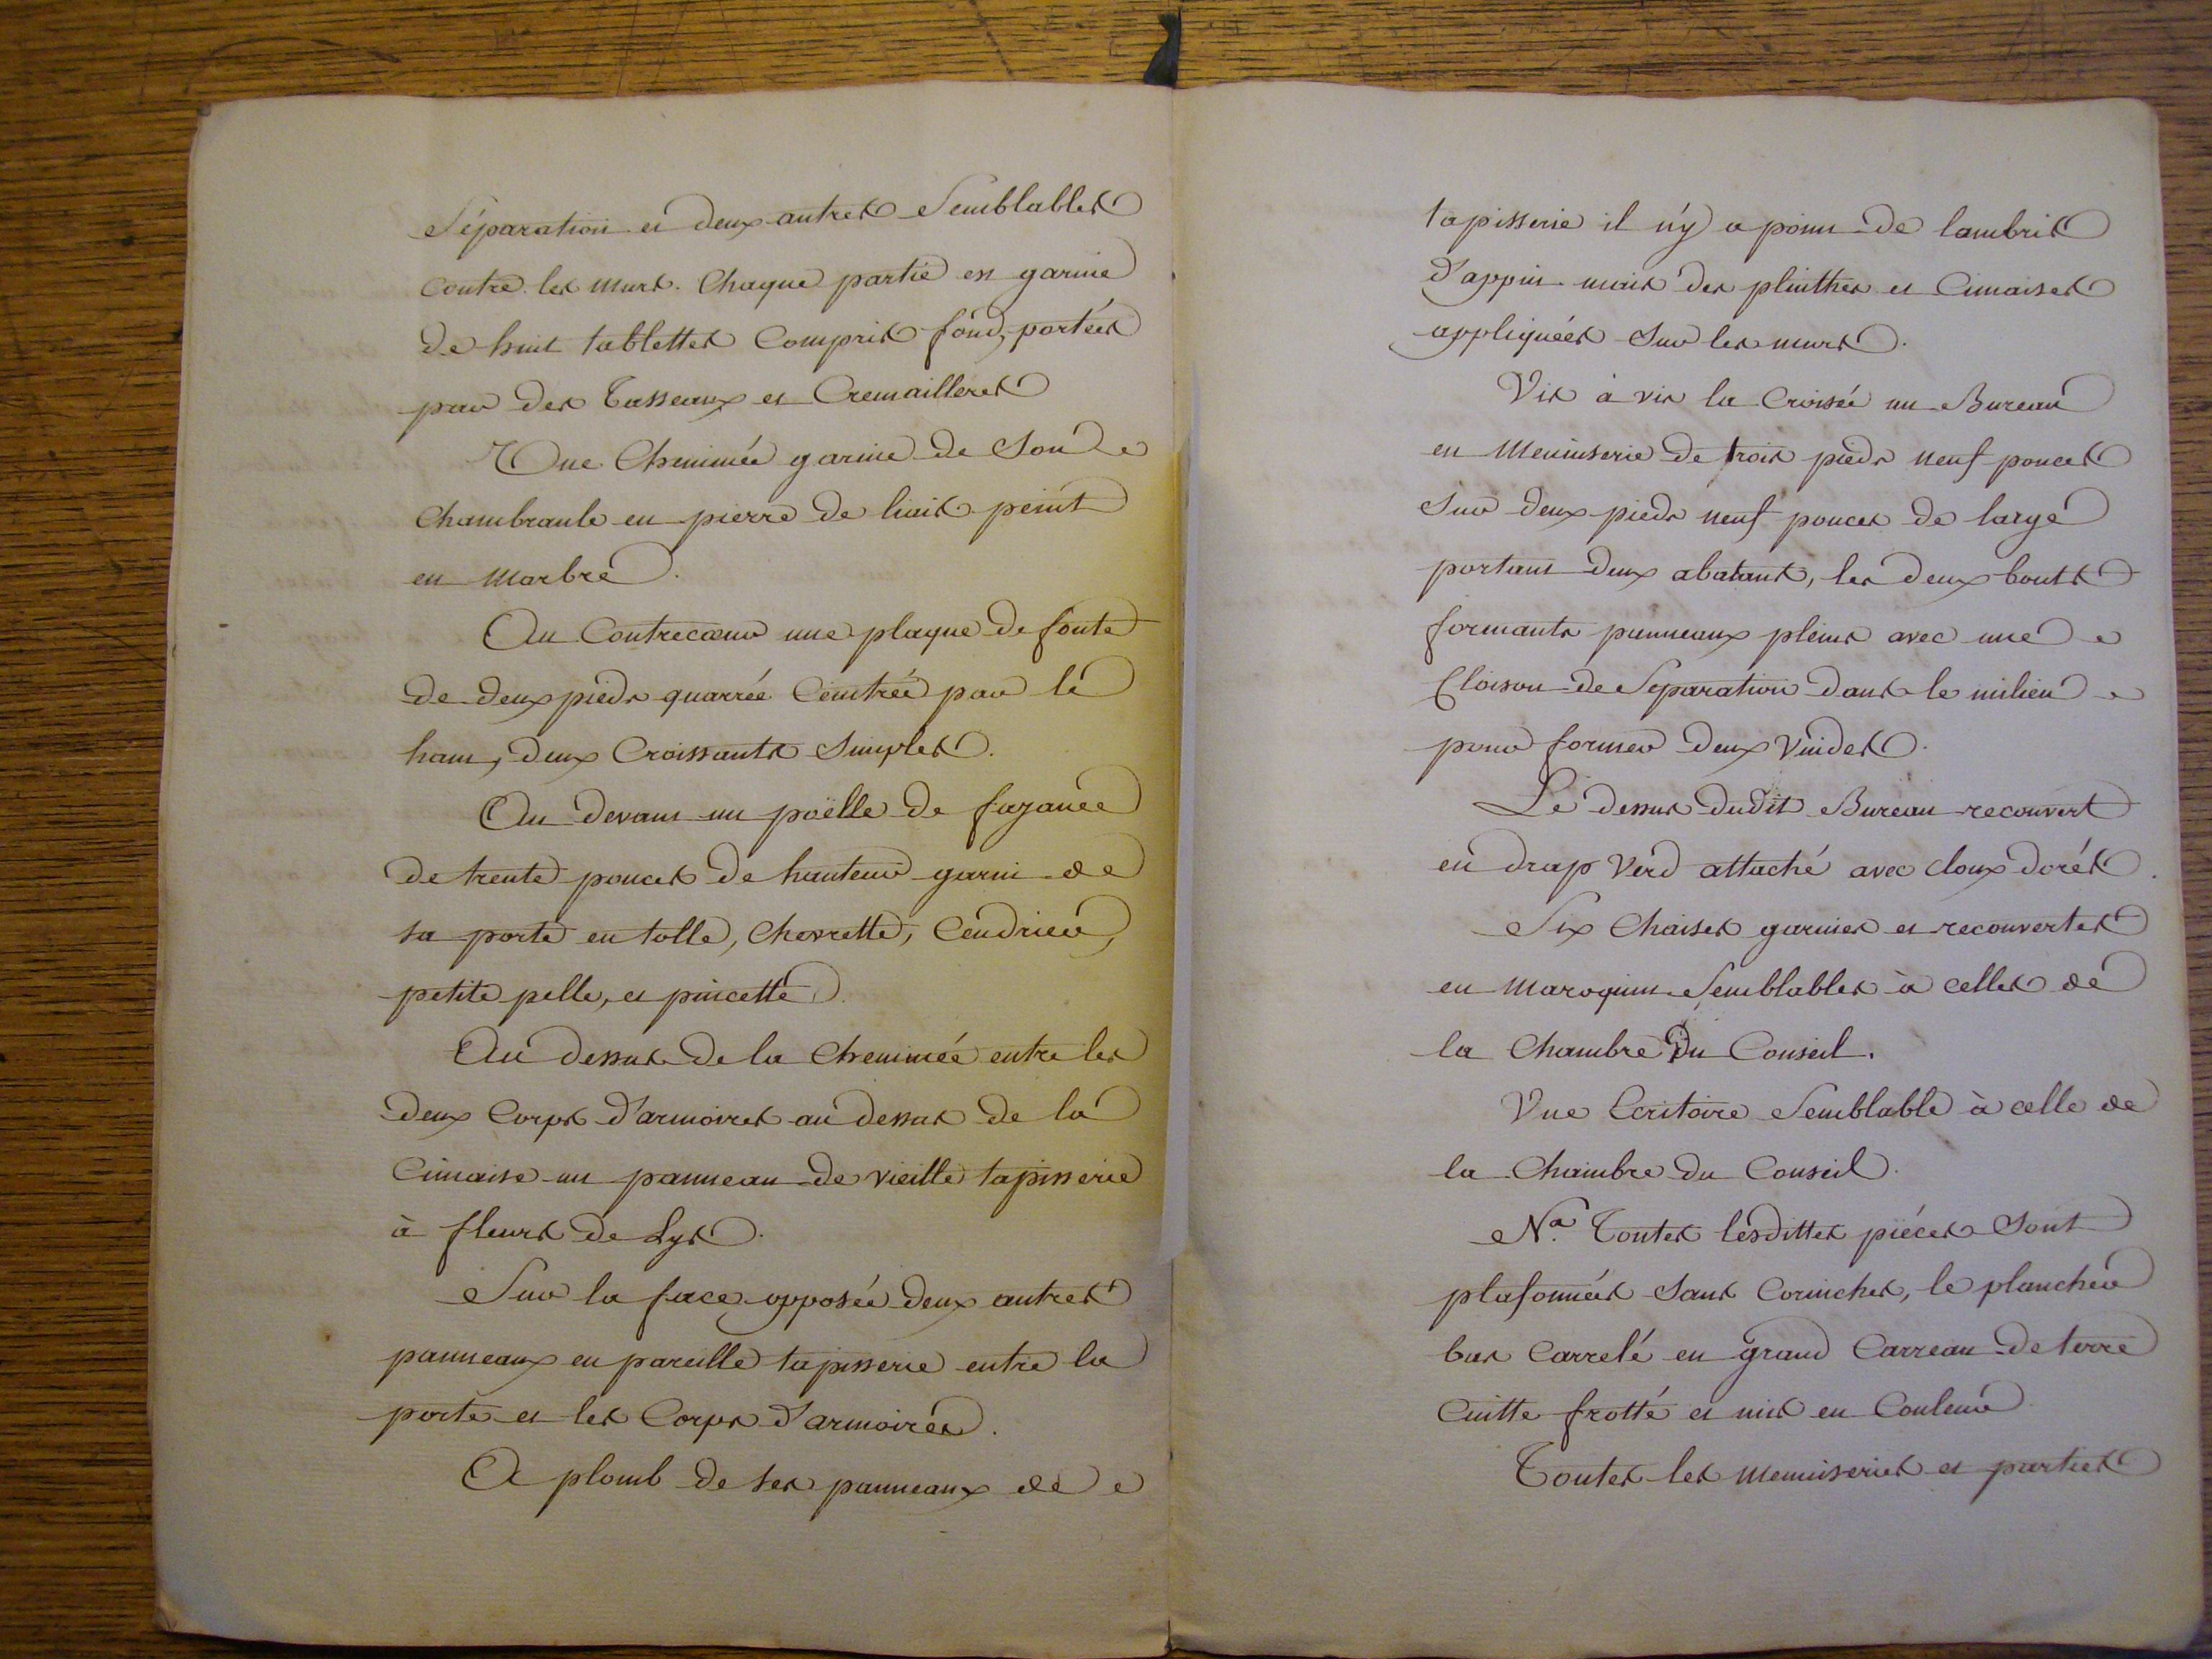 Séparation et deux autres Semblables
contre les murs. Chaque partie est garnie
de huit tablettes Compris fond, portées
par des Tasseaux et Cremailleres
Une Cheminée garnie de Son
Chambranle en pierre de liais peint
en Marbre.
Au Contrecœur une plaque de fonte
de deux pieds quarrée Ceintrée par le
haut, deux Croissants Simples.
Au devant un poëlle de fayance
de trente pouces de hauteur garni de
sa porte en tolle, Chevrette, Cendrier,
petite pelle, et pincette.
Au dessus de la Cheminée entre les
deux Corps d'armoires au dessus de la
Cimaise un panneau de vieille tapisserie
à fleurs de Lys.
Sur la face opposée deux autres
panneaux en pareille tapisserie entre la
porte et les Corps d'armoires.
A plomb de ses panneaux de
tapisserie il n'y a point de lambris
d'appui mais des plinthes et Cimaises
appliquées Sur les murs.
Vis à vis la Croisée un Bureau
en Menuiserie de trois pieds neuf pouces
Sur deux pieds neuf pouces de large
portant deux abatans, les deux bouts
formants panneaux pleins avec une
Cloison de Séparation dans le milieu
pour former deux Vuides.
Le dessus dudit Bureau recouvert
en drap Verd attaché avec cloux dorés.
Six Chaises garnies et recouvertes
en Maroquin Semblables à celles de
la Chambre Du Conseil.
Une Ecritoire Semblable à celle de
la Chambre du Conseil.
Na. Toutes lesdittes piéces Sont
plafonnées Sans Corniches, le plancher
bas Carrelé en grand Carreau de terre
Cuitte frotté et mis en Couleur
Toutes les menuiseries et parties